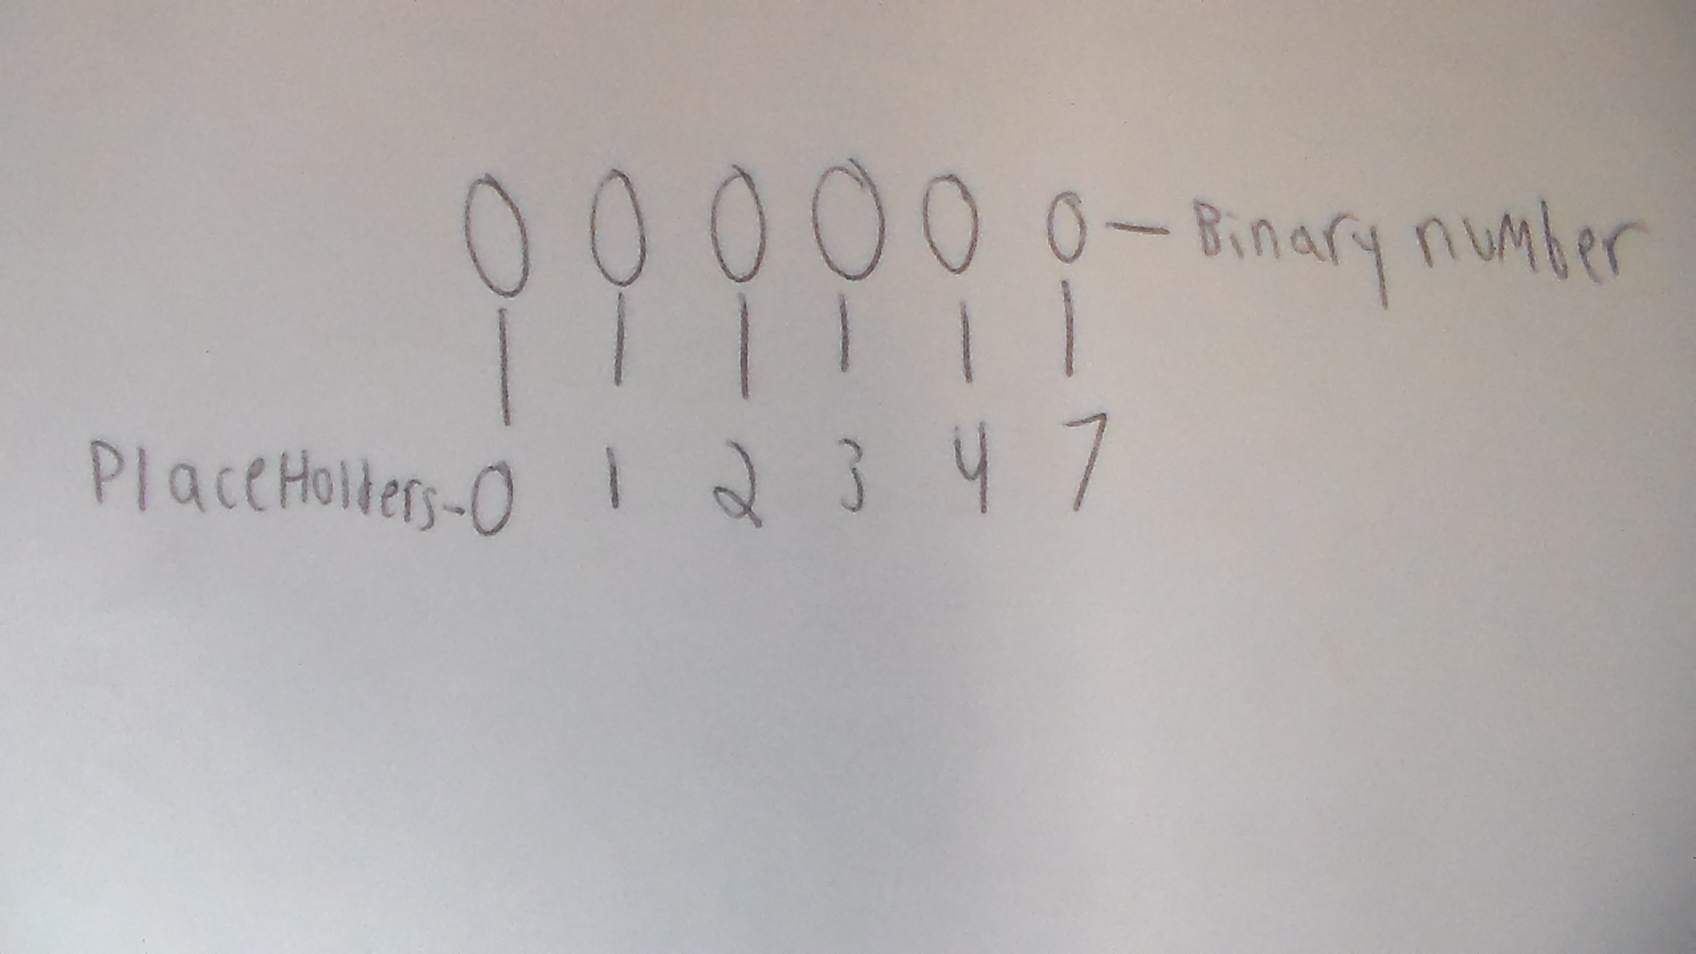 0 0 0 0 0 0 - Binary number
PlaceHolders-0 1 2 3 4 7